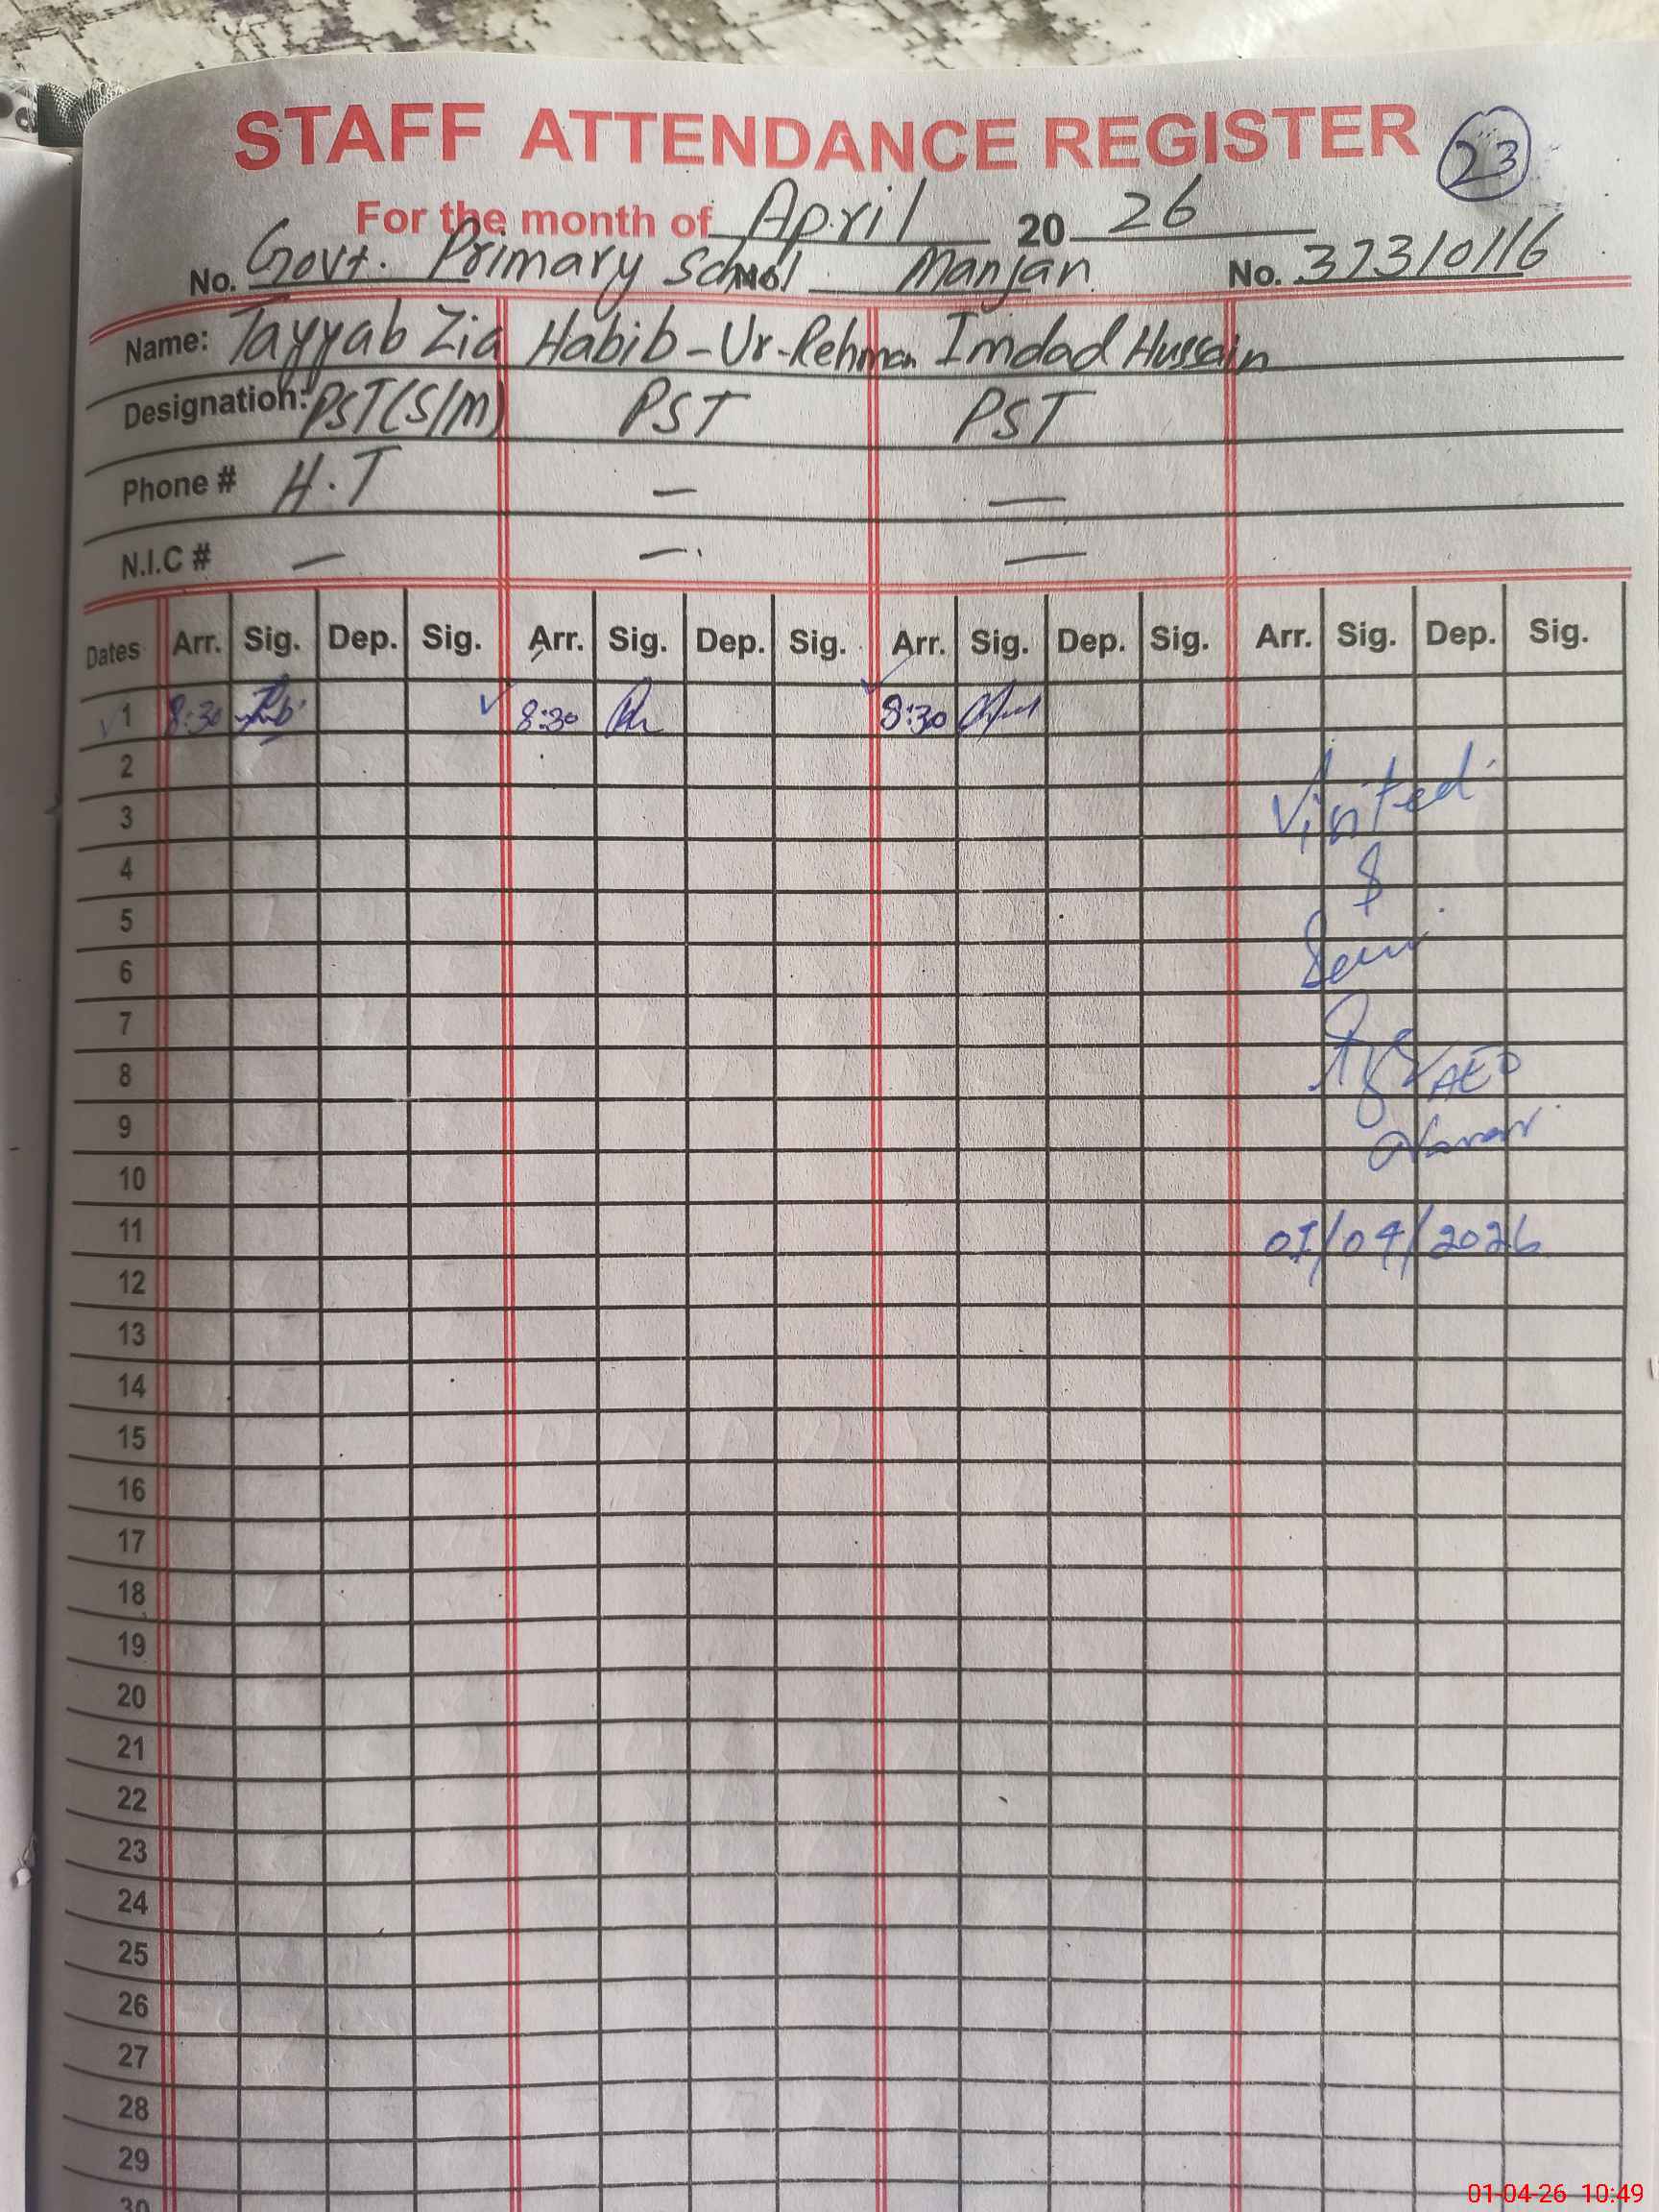 STAFF ATTENDANCE REGISTER 23
For the month of April 20 26
No. Govt. Primary School No. Manjan No. 37310116
Name: Tayyab Zia Habib-Ur-Rehman Imdad Hussain
Designation: PST(S/M) PST PST
Phone # H.T — —
N.I.C # — — —
Dates Arr. Sig. Dep. Sig. Arr. Sig. Dep. Sig. Arr. Sig. Dep. Sig. Arr. Sig. Dep. Sig.
1 8:30 8:30 8:30
2
3 Visited
4 &
5
6
7
8 AEO
9
10
11 01/04/2026
12
13
14
15
16
17
18
19
20
21
22
23
24
25
26
27
28
29
30
01-04-26 10:49